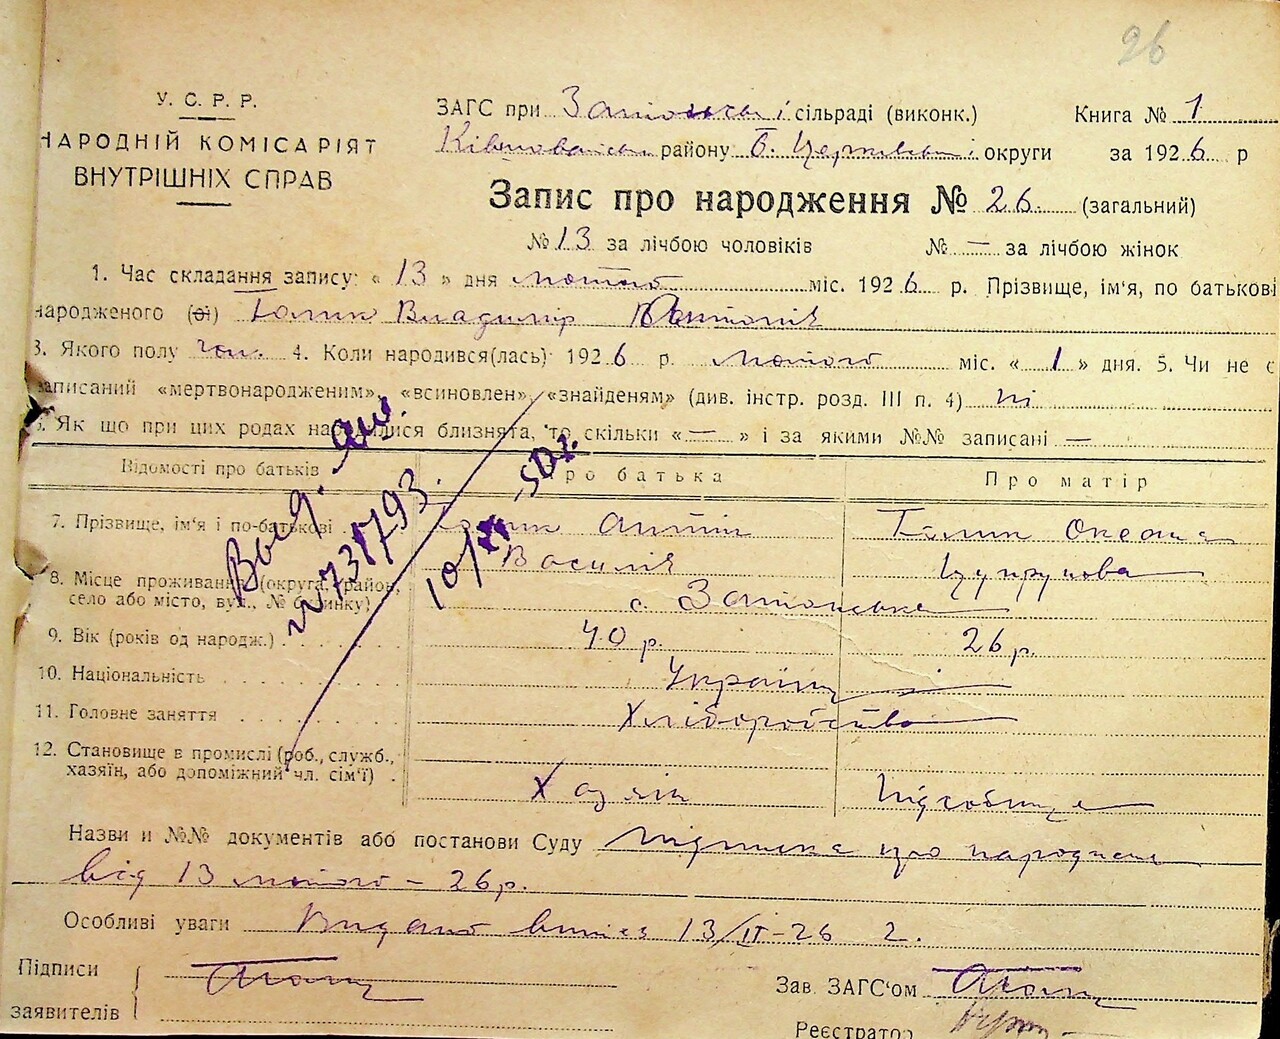 26
У. С. Р. Р.
НАРОДНІЙ КОМІСАРІЯТ
ВНУТРІШНІХ СПРАВ
ЗАГС при сільраді (виконк.) Книга № 1
району Б. Церківської округи за 1926 р
Запис про народження № 26. (загальний)
№ 13 за лічбою чоловіків № — за лічбою жінок
1. Час складання запису: « 13 » дня лютого міс. 1926 р. Прізвище, ім'я, по батькові
народженого (ої) Голик Владимір Антонів
3. Якого полу чол. 4. Коли народився(лась) 1926 р. лютого міс. « 1 » дня. 5. Чи не є
записаний «мертвонародженим», «всиновлен», «знайденям» (див. інстр. розд. III п. 4) ні
6. Як що при цих родах народилися близнята, то скільки « — » і за якими №№ записані —
Відомості про батьків Про батька Про матір
7. Прізвище, ім'я і по-батькові Голик Антін Голик
Василів
8. Місце проживання (округа, район,
село або місто, вул., № будинку) с.
9. Вік (років од народж.) 40 р. 26 р.
10. Національність Україн
11. Головне заняття Хліборобство
12. Становище в промислі (роб., служб.,
хазяїн, або допоміжний чл. сім'ї) Хазяїн
Выд.
№ 731793.
10/ 50 г.
Назви и №№ документів або постанови Суду про народжен
від 13 лютого – 26 р.
Особливі уваги Видано 13/II–26 г.
Підписи
заявителів
Зав. ЗАГС'ом
Реєстратор